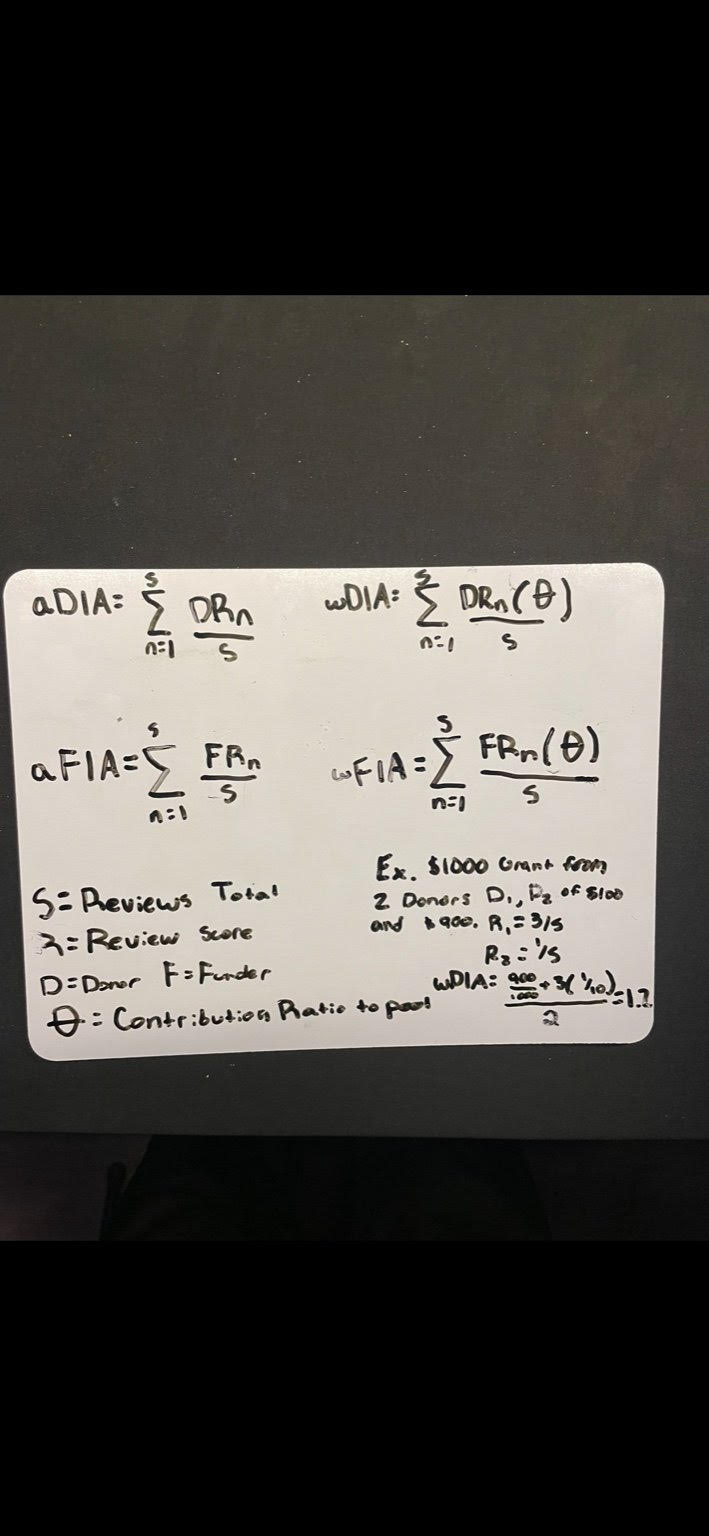 aDIA= s∑n=1 DRn/s
wDIA: s∑n=1 DRn(θ)/s
aFIA= s∑n=1 FRn/s
wFIA= s∑n=1 FRn(θ)/s
S= Reviews Total
R= Review Score
D=Donor F=Funder
θ= Contribution Ratio to pool
Ex. $1000 Grant from
2 Donors D1, D2 of $100
and $900. R1=3/5
R2=1/5
wDIA: (900/1000+3(1/10))/2=1.2